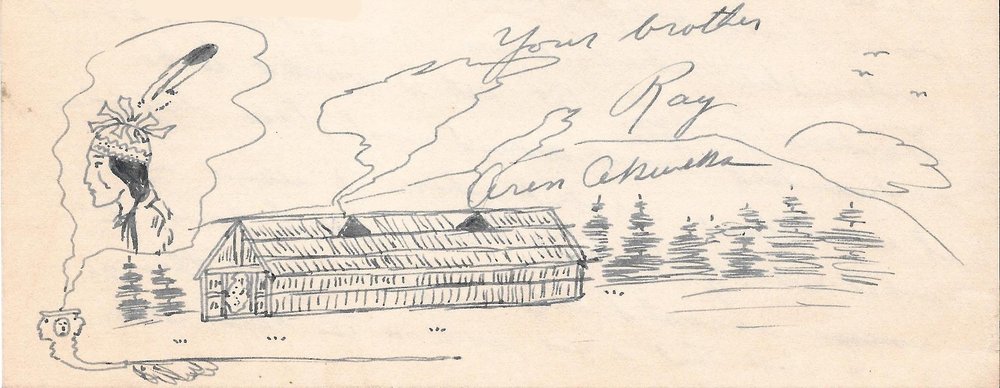 Your brother
Ray
Aren Akweks